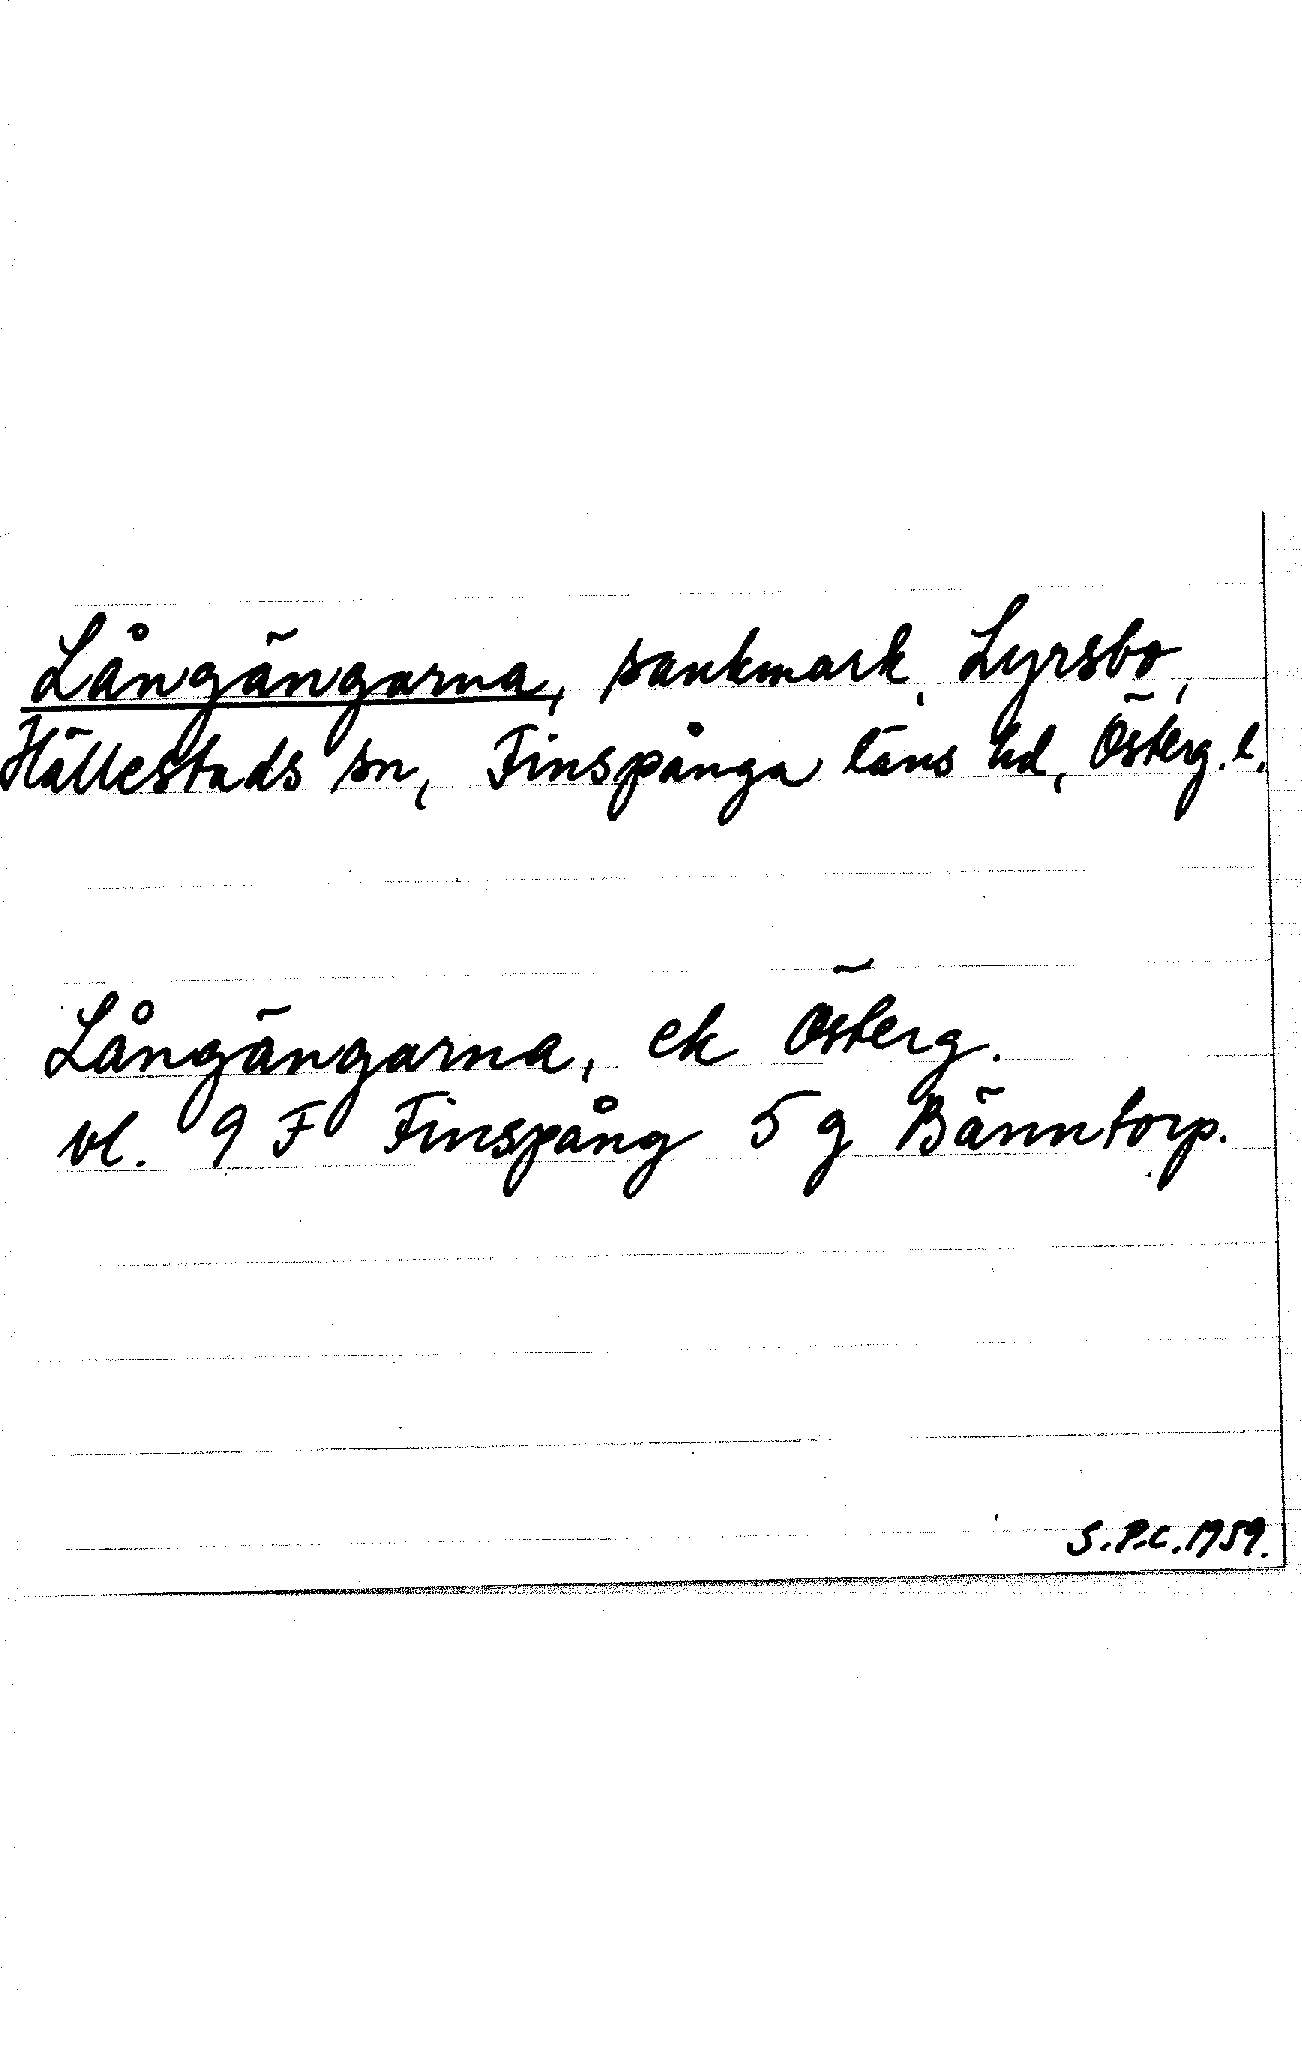 Långängarna, sankmark, Lyrsbo,
Hällestads sn, Finspånga läns hd, Österg. l.
Långängarna, ek Österg.
bl. 9 F Finspång 5 g Bänntorp.
S.P.C. 1959.